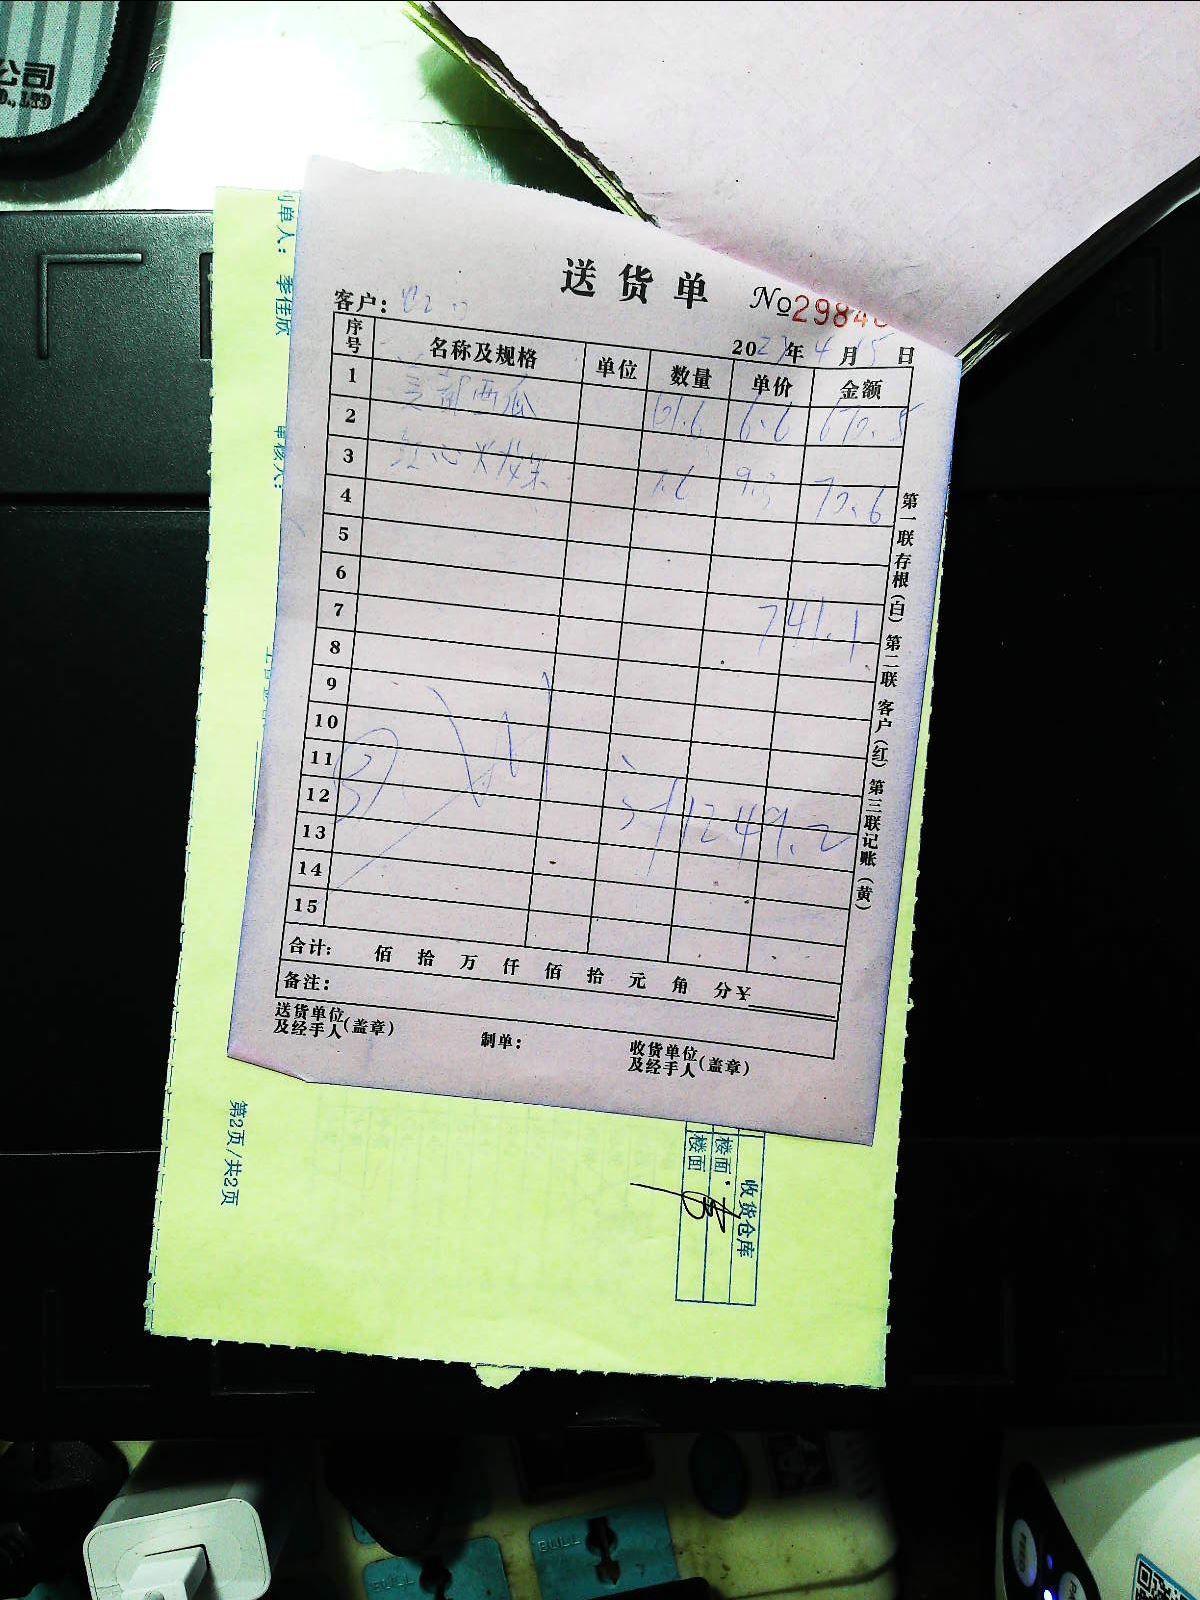 送货单
№2984
客户：
2023年4月15日
序号 名称及规格 单位 数量 单价 金额
1 美都西瓜 101.6 6.6 670.5
2
3 红心火龙果 7.6 9.3 70.6
4
5
6
7 741.1
8
9
10
11
12 计1249.2
13
14
15
合计： 佰 拾 万 仟 佰 拾 元 角 分￥
备注：
送货单位及经手人(盖章) 制单： 收货单位及经手人(盖章)
第一联存根(白) 第二联客户(红) 第三联记账(黄)
制单人： 季佳欣
审核人：
第2页/共2页
收货仓库
楼面
楼面
公司
BULL
BULL